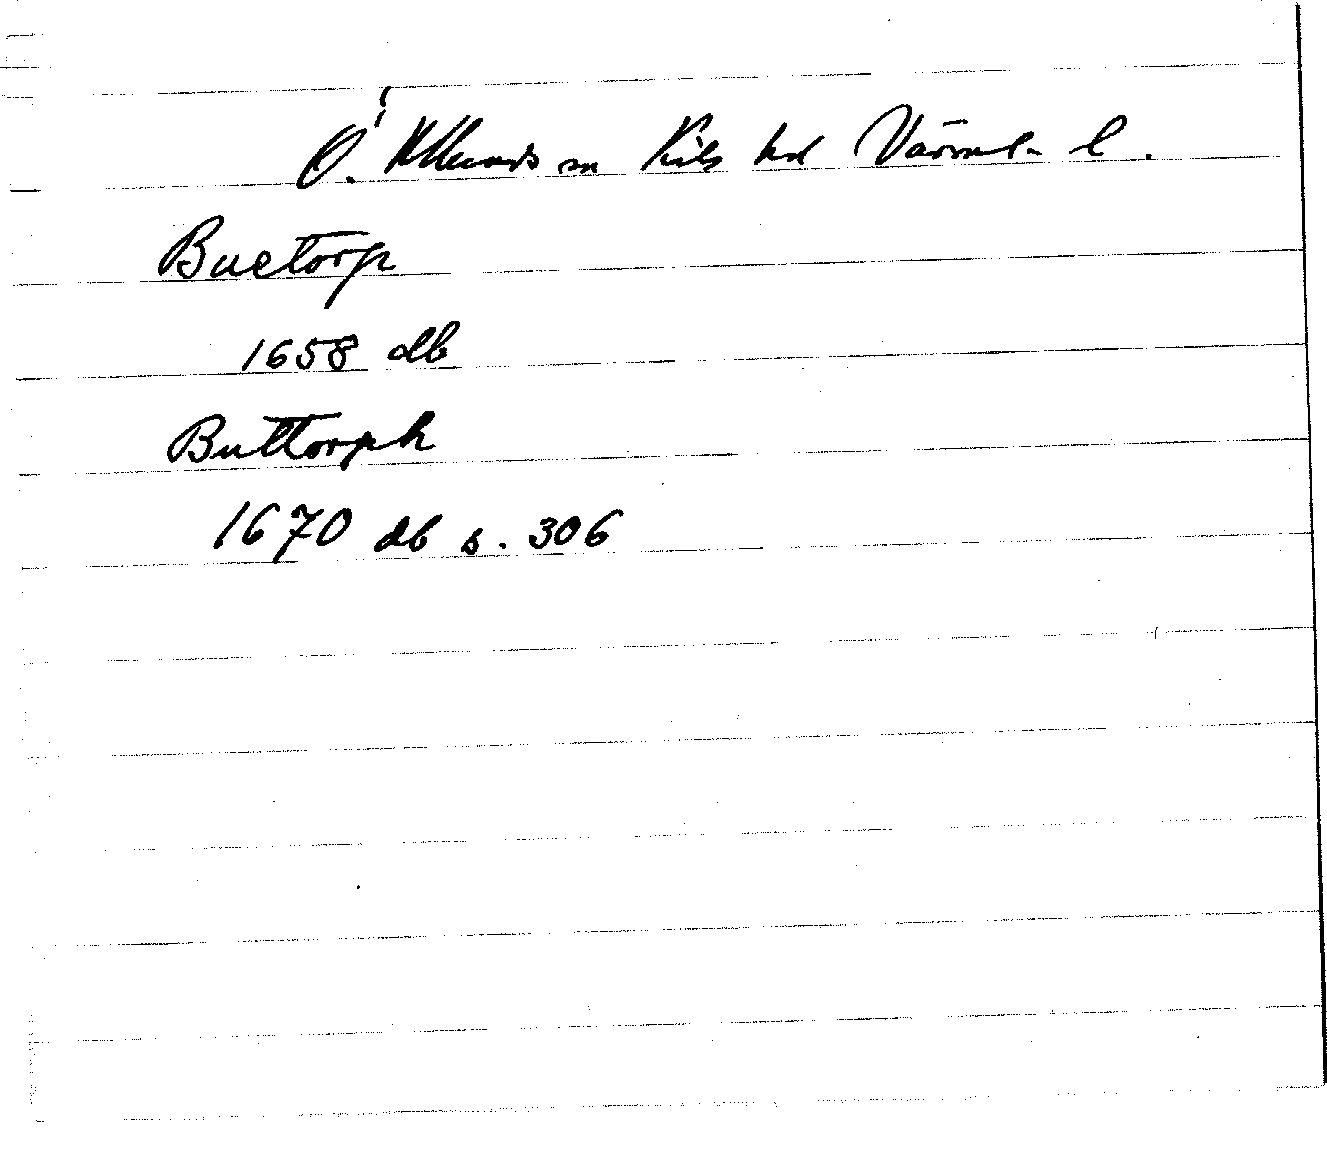 Ö. Ulleruds sn Kils hd Värml. l.
Buetorp
1658 db
Buttorph
1670 db s. 306